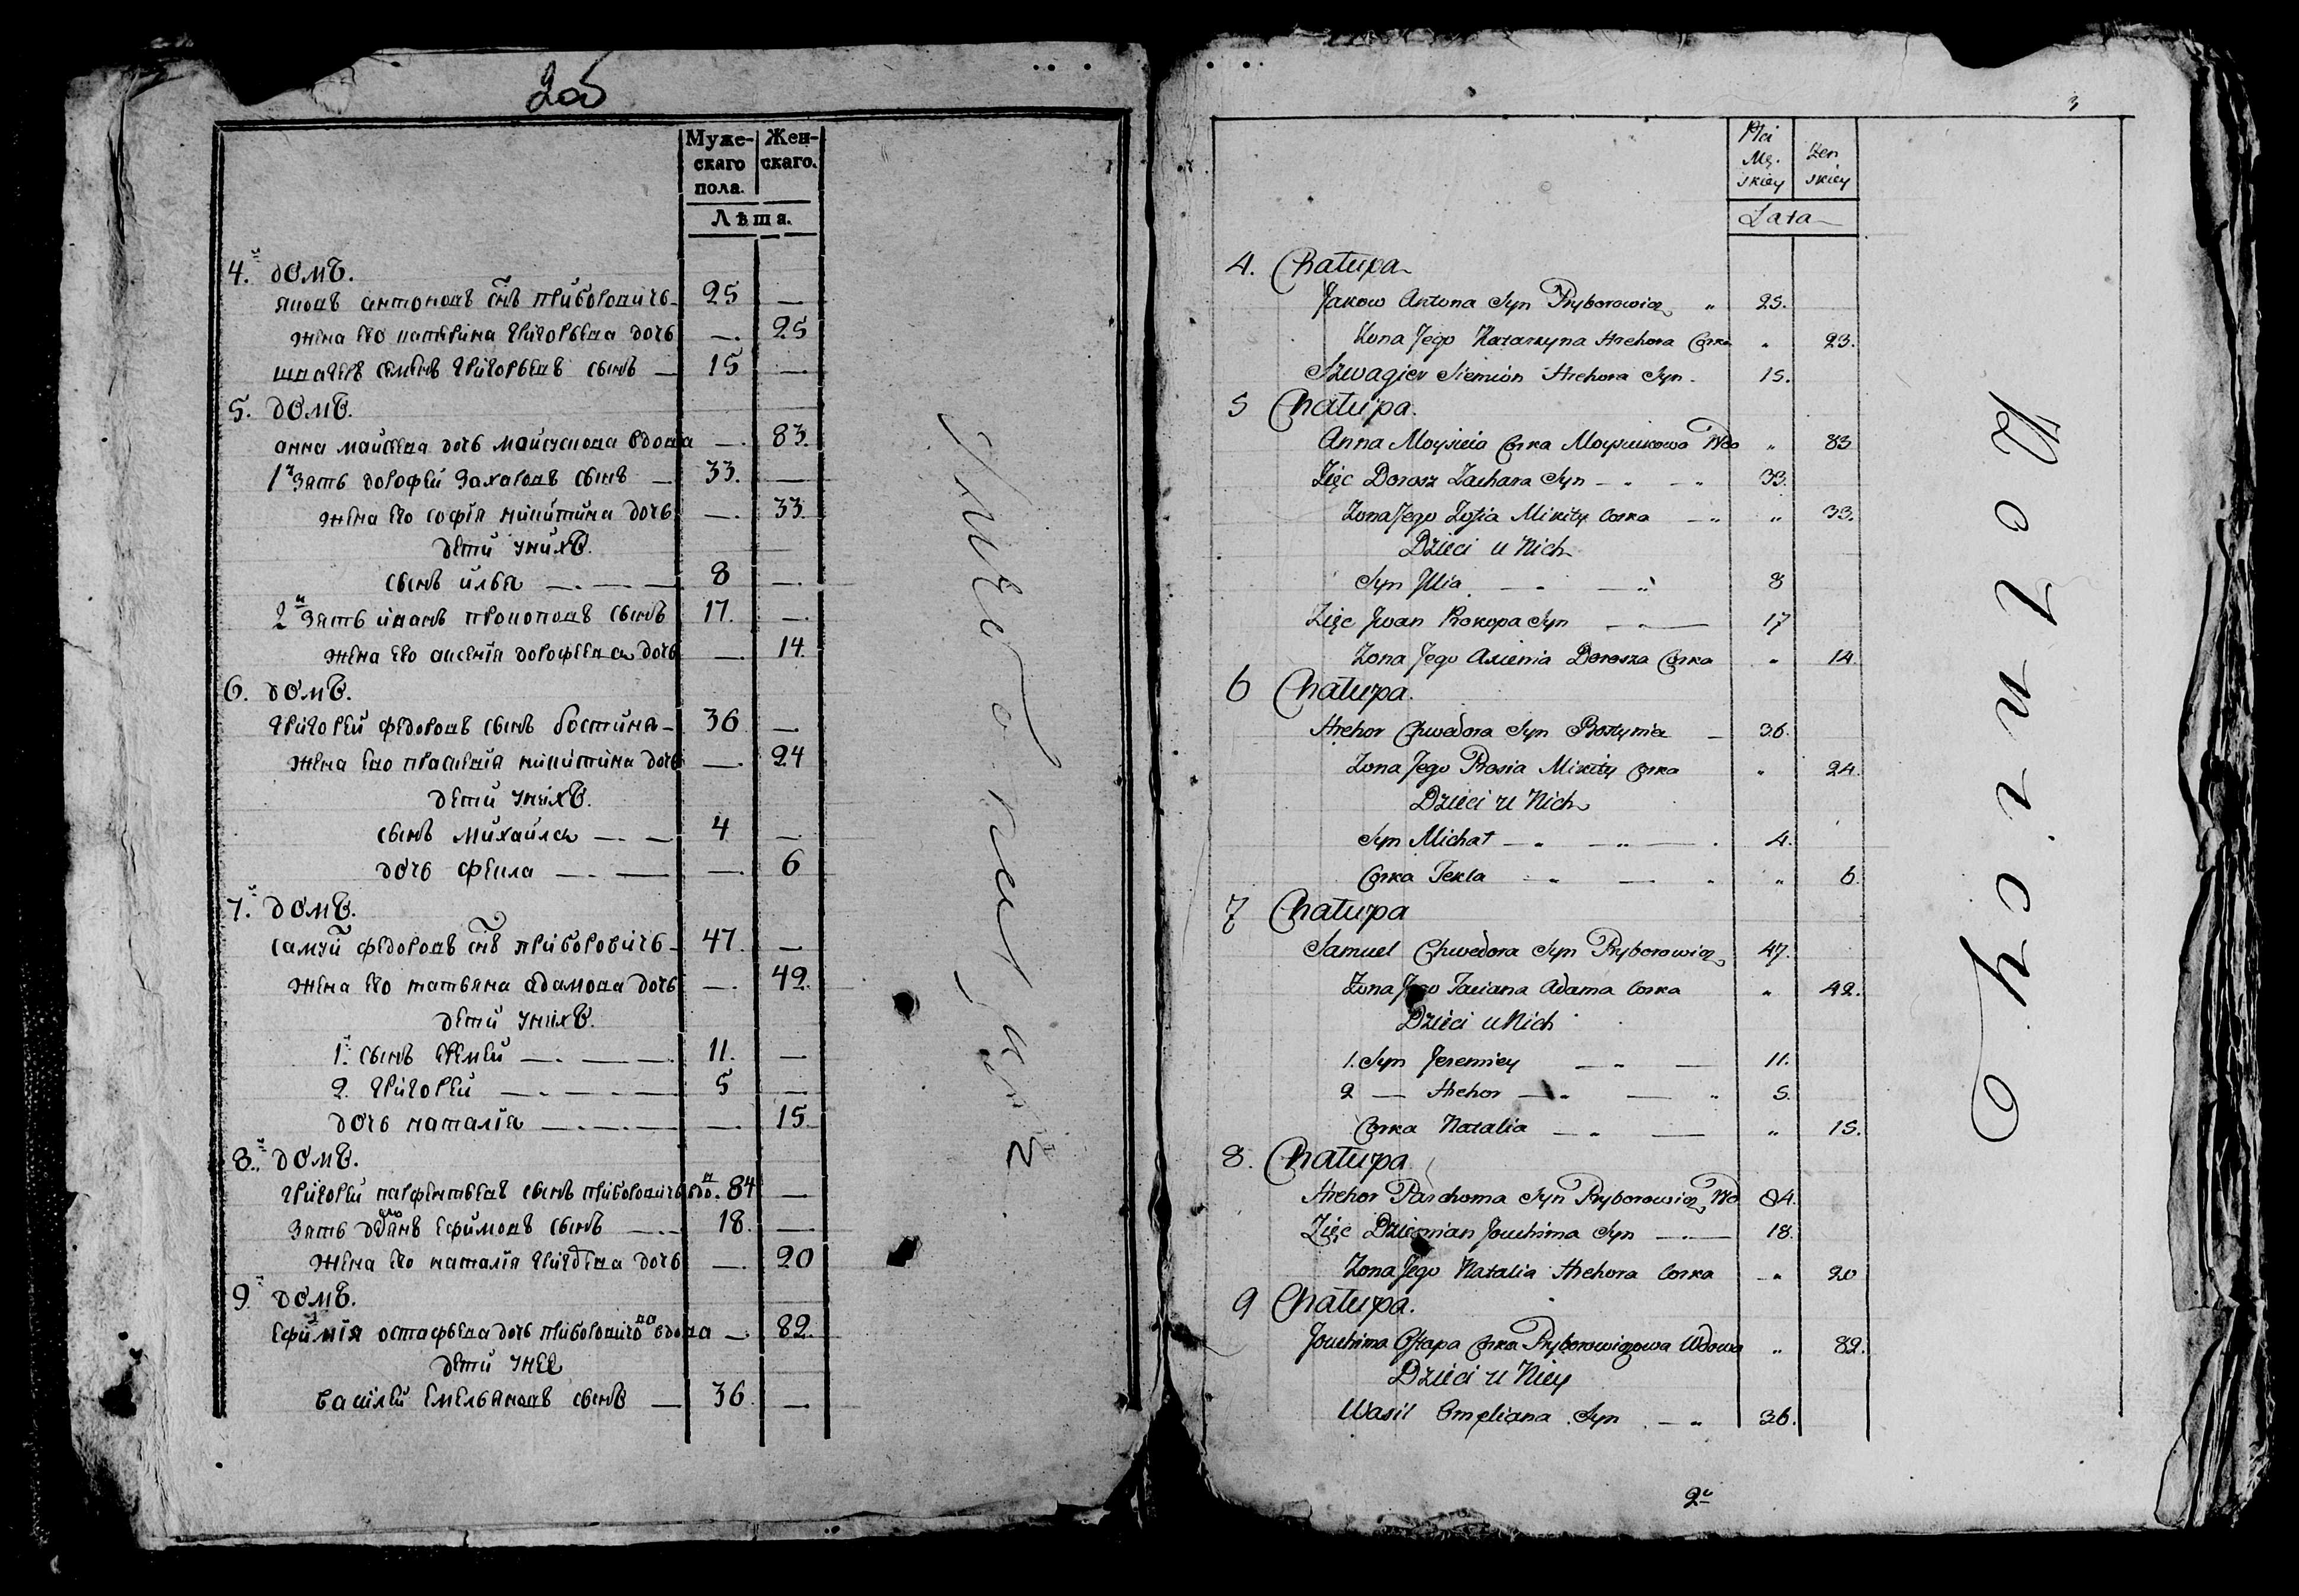 2об
Муже- Жен-
скаго скаго.
пола.
Лѣта.
4.й домъ.
яковъ антоновъ снъ приборовичъ 25 —
жена его катерина григорьева дочь — 25
швагеръ семенъ григорьевъ сынъ — 15 —
5. домъ.
анна майсеева дочь майсукова вдова — 83.
1й зять дорофей захаровъ сынъ — 33. —
жена его софія никитина дочь — 33.
дети унихъ.
сынъ илья — 8 —
2й зять иванъ прокоповъ сынъ 17. —
жена его аксенія дорофеева дочь — 14.
6. домъ.
григорей федоровъ сынъ бостыня — 36 —
жена ево праскевія никитина дочь — 24
дети унихъ.
сынъ михайла — 4 —
дочь фекла — — 6
7.й домъ.
самуй федоровъ снъ приборовичъ — 47. —
жена его татьяна адамова дочь — 42.
дети унихъ.
1.й сынъ еремей — 11. —
2. григорей — 5 —
дочь наталія — — 15.
8.й домъ.
григорей парфентьевъ сынъ приборовичъ вдо. 84 —
зять демянъ ефимовъ сынъ — 18. —
жена его наталія григорева дочь — 20
9.й домъ.
ефимія остафьева дочь приборовичова вдова — 82.
дети унее
василей емельяновъ сынъ — 36 —
3
Płci
Mę. żeń
skiey skiey
Lata
4. Chałupa
Jakow Antona Syn Pryborowicz „ 25.
Żona Jego Katarzyna Hrehora Corka „ 23.
Szwagier Siemion Hrehora Syn. 15.
5 Chałupa.
Anna Moysieia Corka Moysiukowa Wdo „ 83
Zięc Dorosz Zachara Syn — „ — „ 33.
Żona Jego Zofia Mikity Corka — „ „ 33.
Dzieci u Nich
Syn Illia — — „ 8
Zięc Jwan Prokopa Syn — „ — 17
Żona Jego Axienia Dorosza Corka „ 14.
6 Chałupa.
Hrehor Chwedora Syn Bostynia — 36.
Żona Jego Prosia Mikity Corka „ 24.
Dzieci u Nich
Syn Michał — „ — „ — . 4.
Corka Tekla — „ — „ „ 6.
7 Chałupa
Samuel Chwedora Syn Pryborowicz 47.
Żona Jego Taciana Adama Corka „ 42.
Dzieci u Nich
1. Syn Jeremiey — „ — 11.
2 — Hrehor — „ — „ 5.
Corka Natalia — „ — „ 15.
8. Chałupa
Hrehor Parchoma Syn Pryborowicz Wd 84.
Zięc Dziemian Jouchima Syn — „ — 18.
Żona Jego Natalia Hrehora Corka — „ 20
9 Chałupa.
Jouchima Ostapa Corka Pryborowiczowa Wdowa „ 82.
Dzieci u Niey
Wasil Omeliana Syn — „ 36.
Rolnicy
2й